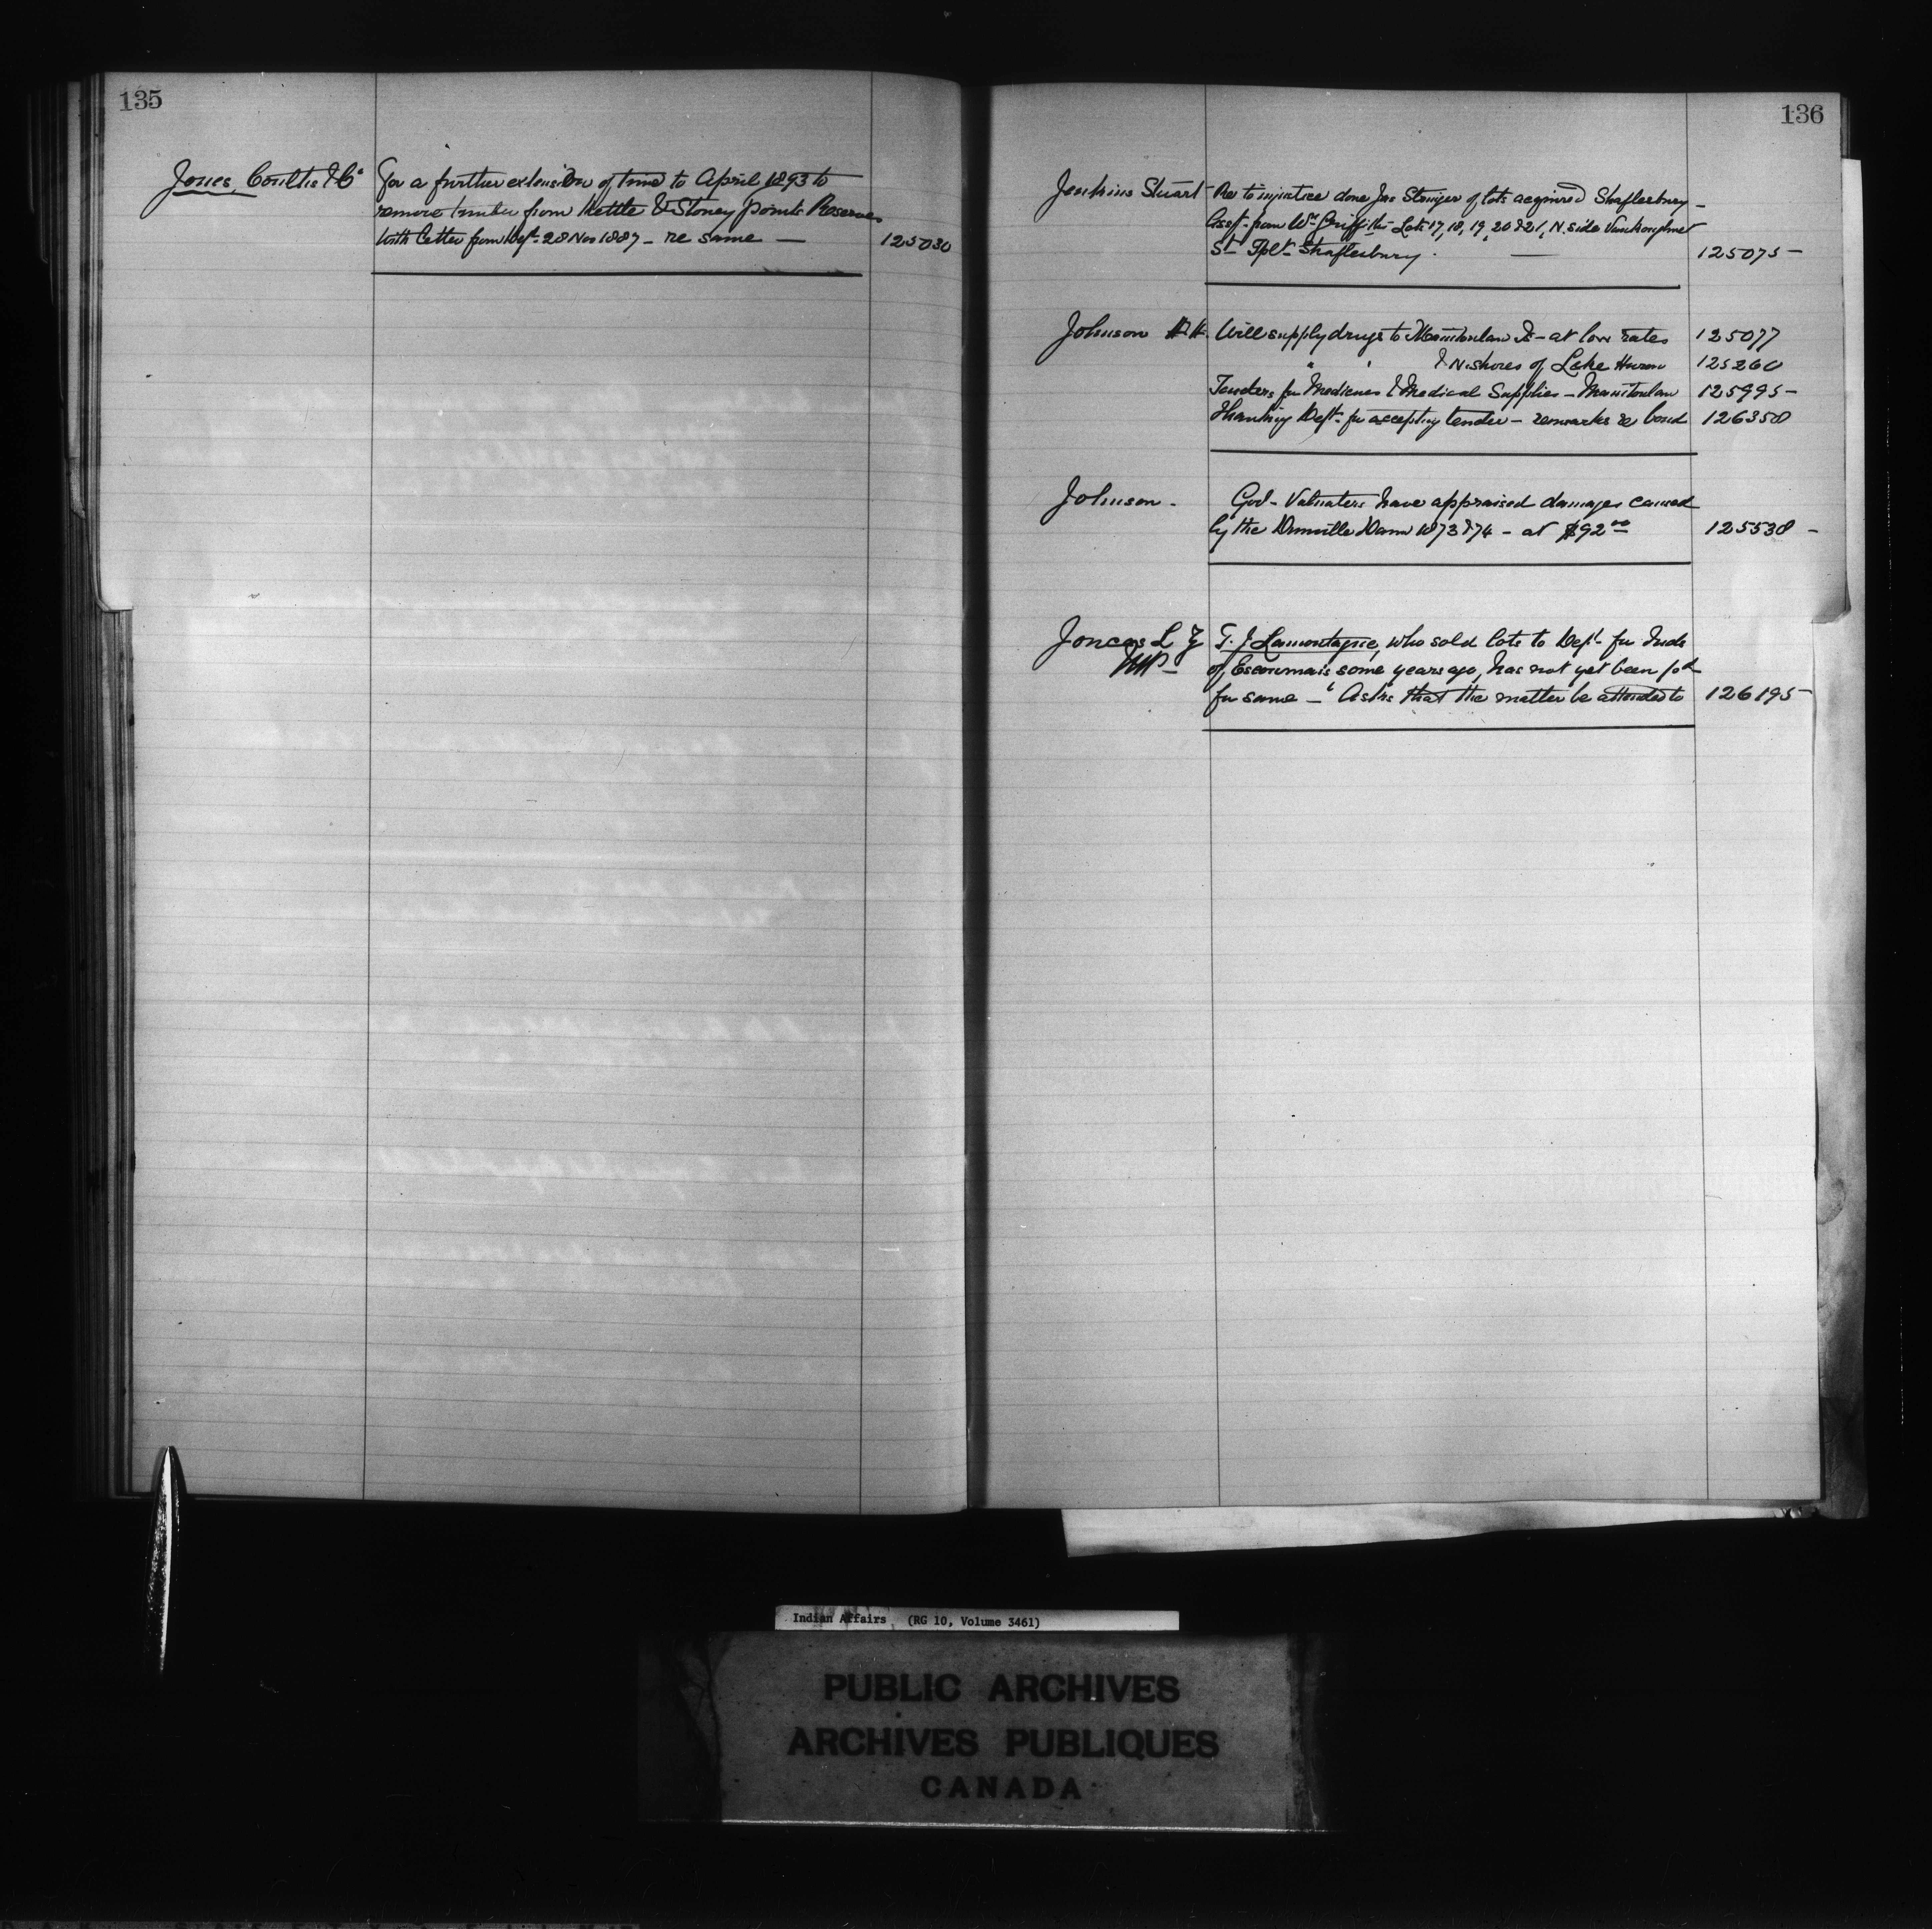 135
Jones, Coultis & Co
For a further extension of time to April 1893 to
remove timber from Kettle & Stoney points Reserves
With letter from Dept. 28 Nov 1887 - re same —
125030
136
Jenkins Stuart
Re to injustice done Jas of lots acquired Shaftesbury -
from Wm Griffith - Lots 17, 18, 19, 20 & 21, N. side Vankoughnet
St - Tplt - Shaftesbury. —
125075 -
Johnson H.
Will supply drugs to Manitoulin Is - at low rates
125077
" " & N. shores of Lake Huron
125260
Tenders for Medicines & Medical Supplies - Manitoulin
125995 -
Thanking Dept. for accepting tender - remarks re bond
126358
Johnson -
Govt - Valuators have appraised damages caused
by the Dunville Dam 1873 & 74 - at $92.00
125538 -
Joncas L Z
MP -
T. J Lamontagne, who sold lots to Dept. for Inds
of Escoumais some years ago, has not yet been pd
for same - Asks that the matter be attended to
126195 -
Indian Affairs (RG 10, Volume 3461)
PUBLIC ARCHIVES
ARCHIVES PUBLIQUES
CANADA